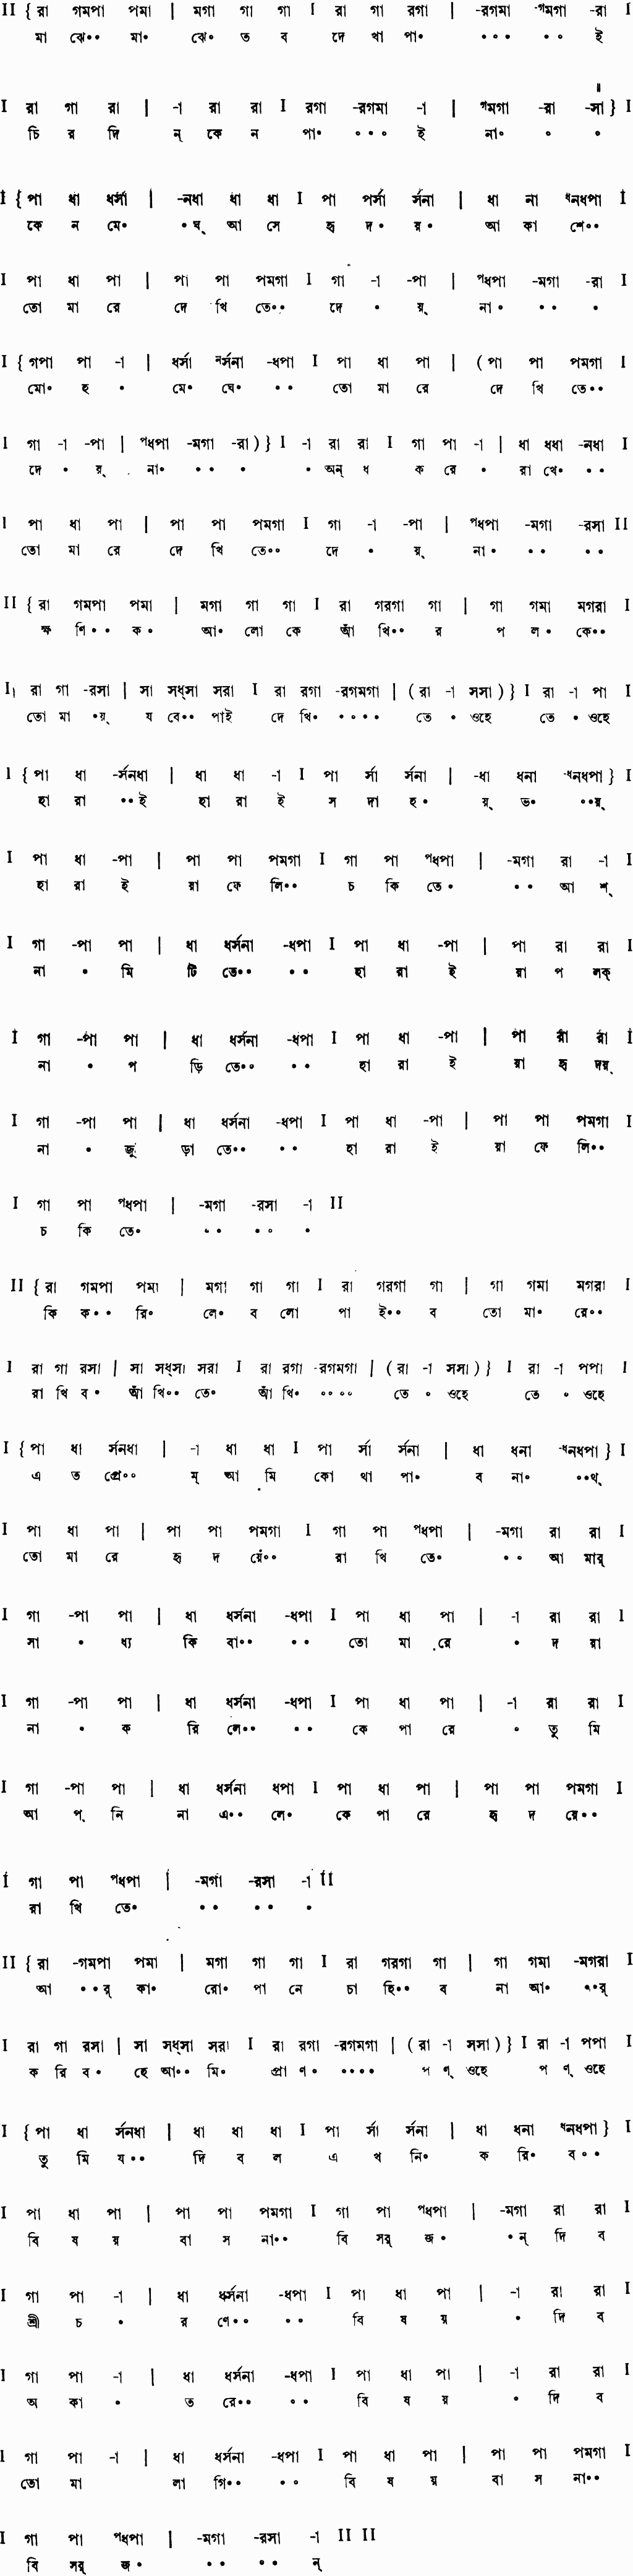 II {রা গমপা পমা | মগা গা গা I রা গা রগা | -রগমা -ᵃমগা -রা I
মা ঝে•• মা• ঝে• ত ব দে খা পা• ••• •• ই
I রা গা রা | -া রা রা I রগা -রগমা -া | ᵍমগা -রা -সা} I
চি র দি ন্ কে ন পা• ••• ই না• • •
I {পা ধা ধর্সা | -নধা ধা ধা I পা পর্সা র্সনা | ধা না ধনধপা I
কে ন মে• •ঘ্ আ সে হৃ দ• য়• আ কা শে••
I পা ধা পা | পা পা পমগা I গা -া -পা | পধপা -মগা -রা I
তো মা রে দে খি তে•• দে • য়্ না• •• •
I {গপা পা -া | ধর্সা নর্সনা -ধপা I পা ধা পা | (পা পা পমগা I
মো• হ • মে• ঘে• •• তো মা রে দে খি তে••
I গা -া -পা | পধপা -মগা -রা)} I -া রা রা I গা পা -া | ধা ধধা -নধা I
দে • য়্ না• •• • • অন্ ধ ক রে • রা খে• ••
I পা ধা পা | পা পা পমগা I গা -া -পা | পধপা -মগা -রসা II
তো মা রে দে খি তে•• দে • য়্ না• •• ••
II {রা গমপা পমা | মগা গা গা I রা গরগা গা | গা গমা মগরা I
ক্ষ ণি•• ক• আ• লো কে আঁ খি•• র প ল• কে••
I রা গা -রসা | সা সধ্সা সরা I রা রগা -রগমগা | (রা -া সসা)} I রা -া পা I
তো মা •য়্ য বে•• পাই দে খি• •••• তে • ওহে তে • ওহে
I {পা ধা -র্সনধা | ধা ধা -া I পা র্সা র্সনা | -ধা ধনা -ধনধপা} I
হা রা ••ই হা রা ই স দা হ• য়্ ভ• ••য়্
I পা ধা -পা | পা পা পমগা I গা পা পধপা | -মগা রা -া I
হা রা ই য়া ফে লি•• চ কি তে• •• আ শ্
I গা -পা পা | ধা ধর্সনা -ধপা I পা ধা -পা | পা রা রা I
না • মি টি তে•• •• হা রা ই য়া প লক্
I গা -পা পা | ধা ধর্সনা -ধপা I পা ধা -পা | পা রা রা I
না • প ড়ি তে•• •• হা রা ই য়া হৃ দয়্
I গা -পা পা | ধা ধর্সনা -ধপা I পা ধা -পা | পা পা পমগা I
না • জু ড়া তে•• •• হা রা ই য়া ফে লি••
I গা পা পধপা | -মগা -রসা -া II
চ কি তে• •• •• •
II {রা গমপা পমা | মগা গা গা I রা গরগা গা | গা গমা মগরা I
কি ক•• রি• লে• ব লো পা ই•• ব তো মা• রে••
I রা গা রসা | সা সধ্সা সরা I রা রগা -রগমগা | (রা -া সসা)} I রা -া পপা I
রা খি ব• আঁ খি•• তে• আঁ খি• •••• তে • ওহে তে • ওহে
I {পা ধা র্সনধা | -া ধা ধা I পা র্সা র্সনা | ধা ধনা -ধনধপা} I
এ ত প্রে•• ম্ আ মি কো থা পা• ব না• ••থ্
I পা ধা পা | পা পা পমগা I গা পা পধপা | -মগা রা রা I
তো মা রে হৃ দ য়ে•• রা খি তে• •• আ মার্
I গা -পা পা | ধা ধর্সনা -ধপা I পা ধা পা | -া রা রা I
সা • ধ্য কি বা•• •• তো মা রে • দ য়া
I গা -পা পা | ধা ধর্সনা -ধপা I পা ধা পা | -া রা রা I
না • ক রি লে•• •• কে পা রে • তু মি
I গা -পা পা | ধা ধর্সনা ধপা I পা ধা পা | পা পা পমগা I
আ প্ নি না এ•• লে• কে পা রে হৃ দ য়ে••
I গা পা পধপা | -মগা -রসা -া II
রা খি তে• •• •• •
II {রা -গমপা পমা | মগা গা গা I রা গরগা গা | গা গমা -মগরা I
আ ••র্ কা• রো• পা নে চা হি•• ব না আ• ••র্
I রা গা রসা | সা সধ্সা সরা I রা রগা -রগমগা | (রা -া সসা)} I রা -া পপা I
ক রি ব• হে আ•• মি• প্রা ণ• •••• প ণ্ ওহে প ণ্ ওহে
I {পা ধা র্সনধা | ধা ধা ধা I পা র্সা র্সনা | ধা ধনা ধনধপা} I
তু মি য•• দি ব ল এ খ নি• ক রি• ব••
I পা ধা পা | পা পা পমগা I গা পা পধপা | -মগা রা রা I
বি ষ য় বা স না•• বি সর্ জ• •ন্ দি ব
I গা পা -া | ধা ধর্সনা -ধপা I পা ধা পা | -া রা রা I
শ্রী চ • র ণে•• •• বি ষ য় • দি ব
I গা পা -া | ধা ধর্সনা -ধপা I পা ধা পা | -া রা রা I
অ কা • ত রে•• •• বি ষ য় • দি ব
I গা পা -া | ধা ধর্সনা -ধপা I পা ধা পা | পা পা পমগা I
তো মা লা গি•• •• বি ষ য় বা স না••
I গা পা পধপা | -মগা -রসা -া II II
বি সর্ জ• •• •• ন্